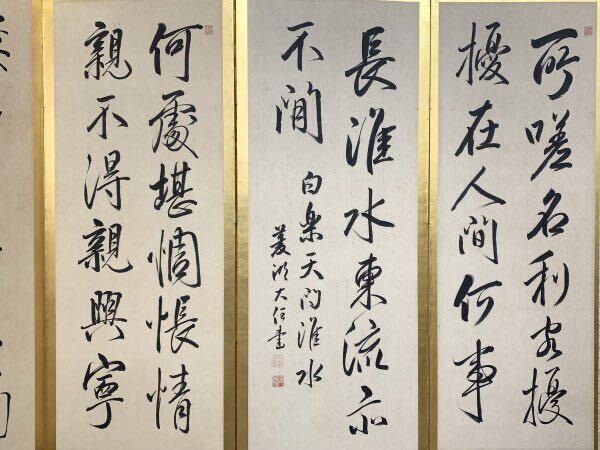 所嗟名利客擾
擾在人間何事
長淮水東流亦
不閒
白樂天問淮水
菱湖大任書
何處堪惆悵情
親不得親興寧